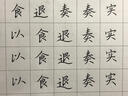 食退奏奏实
以食退奏实
以食退奏实
以食退奏实